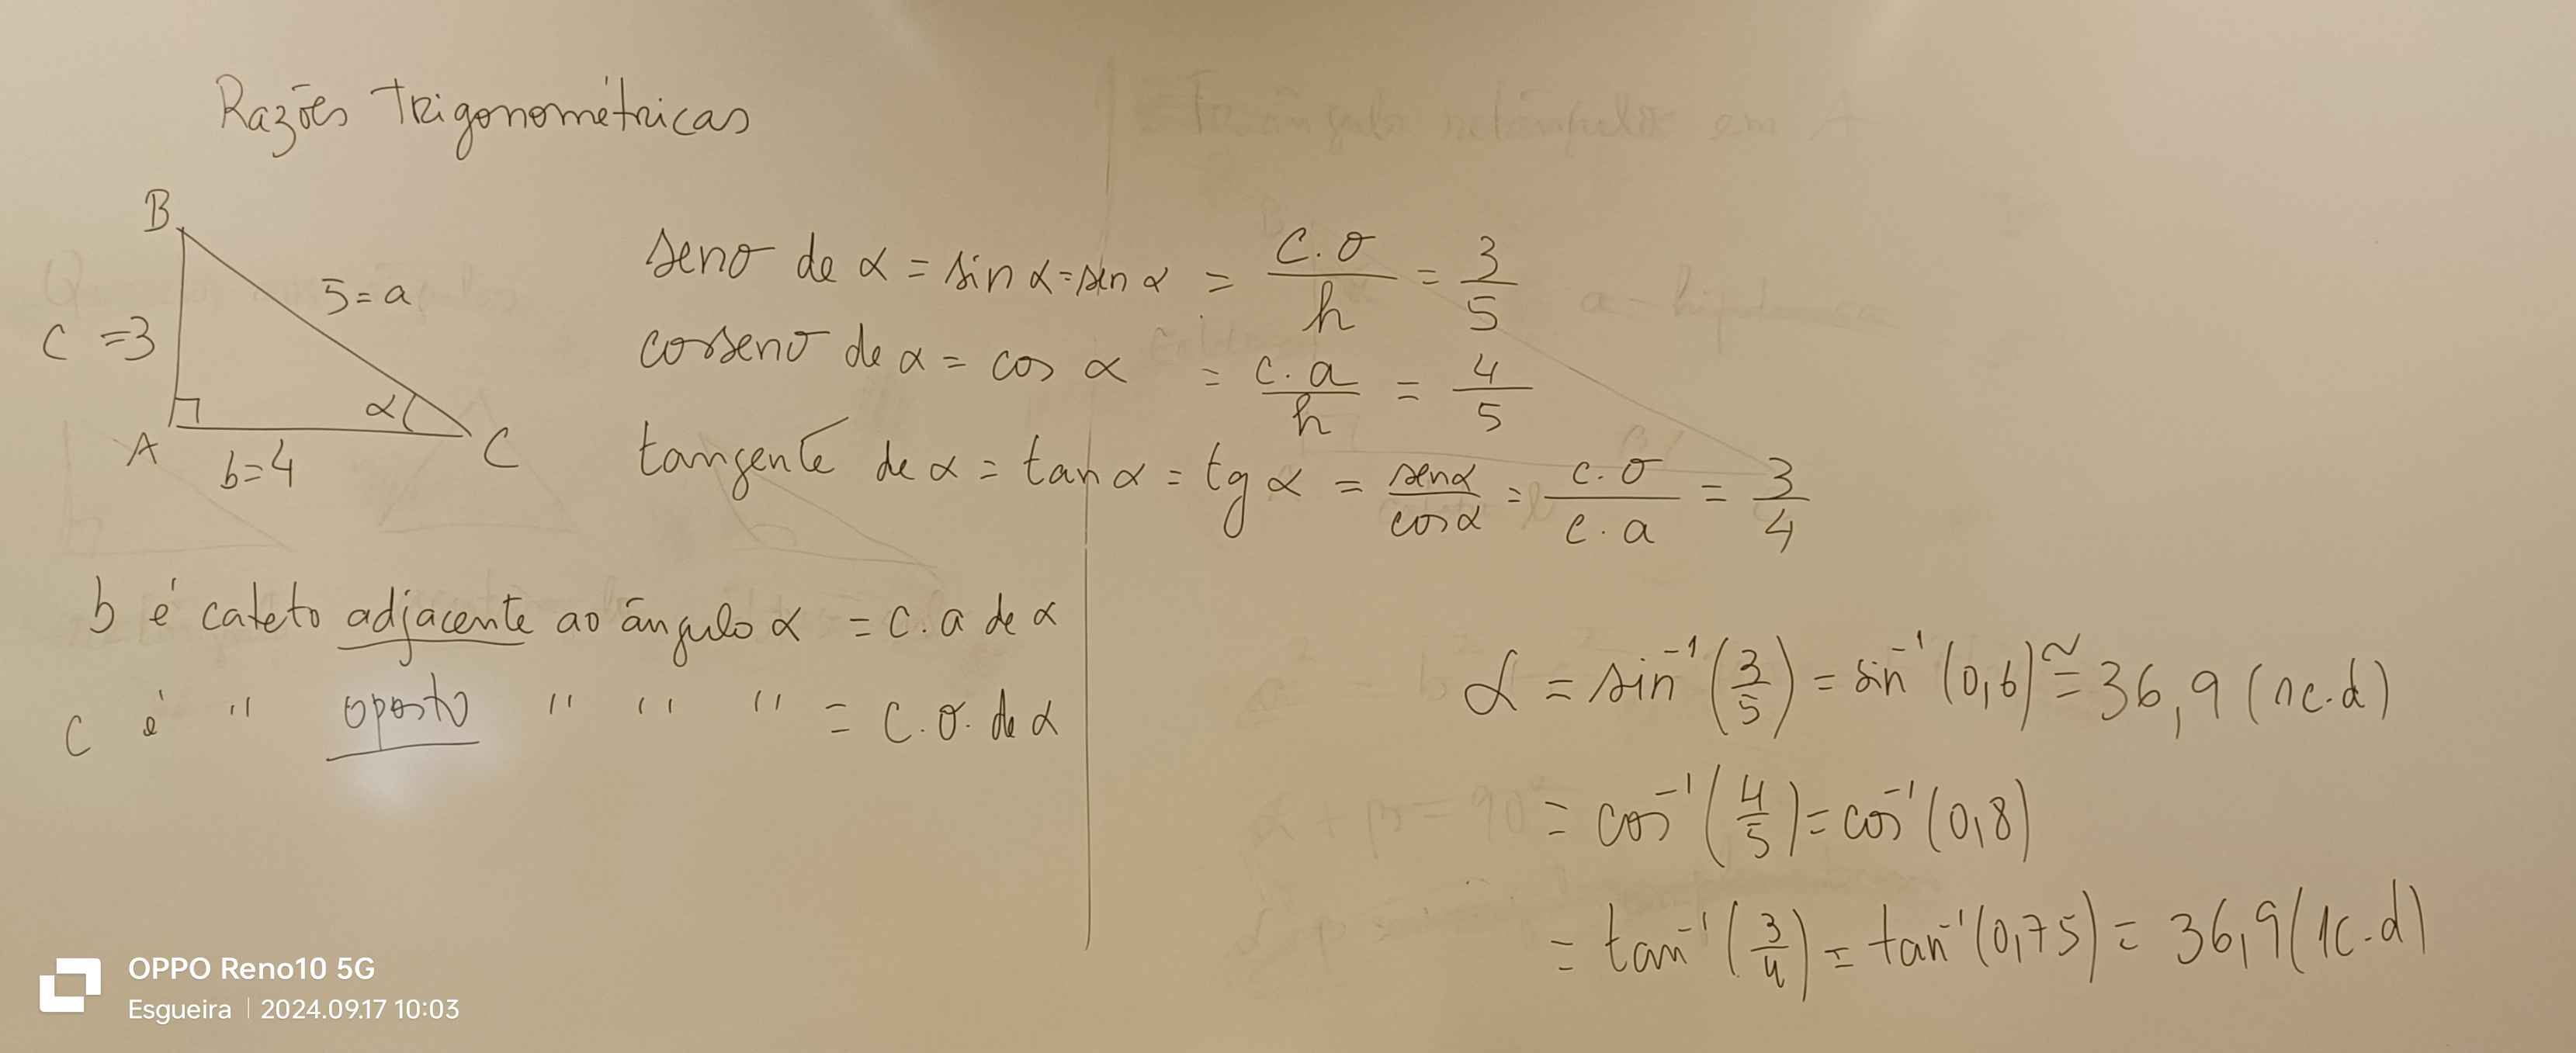 Razões Trigonométricas
B
5=a
c=3
α
A
b=4
C
seno de α = sin α = sen α = c.o/h = 3/5
cosseno de α = cos α = c.a/h = 4/5
tangente de α = tan α = tg α = senα/cosα = c.o/c.a = 3/4
b é cateto adjacente ao ângulo α = c.a de α
c é " oposto " " " = c.o. de α
α = sin⁻¹(3/5) = sin⁻¹(0,6) ≅ 36,9 (1c.d)
= cos⁻¹(4/5) = cos⁻¹(0,8)
= tan⁻¹(3/4) = tan⁻¹(0,75) = 36,9 (1c.d)
Triângulo retângulo em A
a - hipotenusa
α + β = 90°
OPPO Reno10 5G
Esgueira | 2024.09.17 10:03